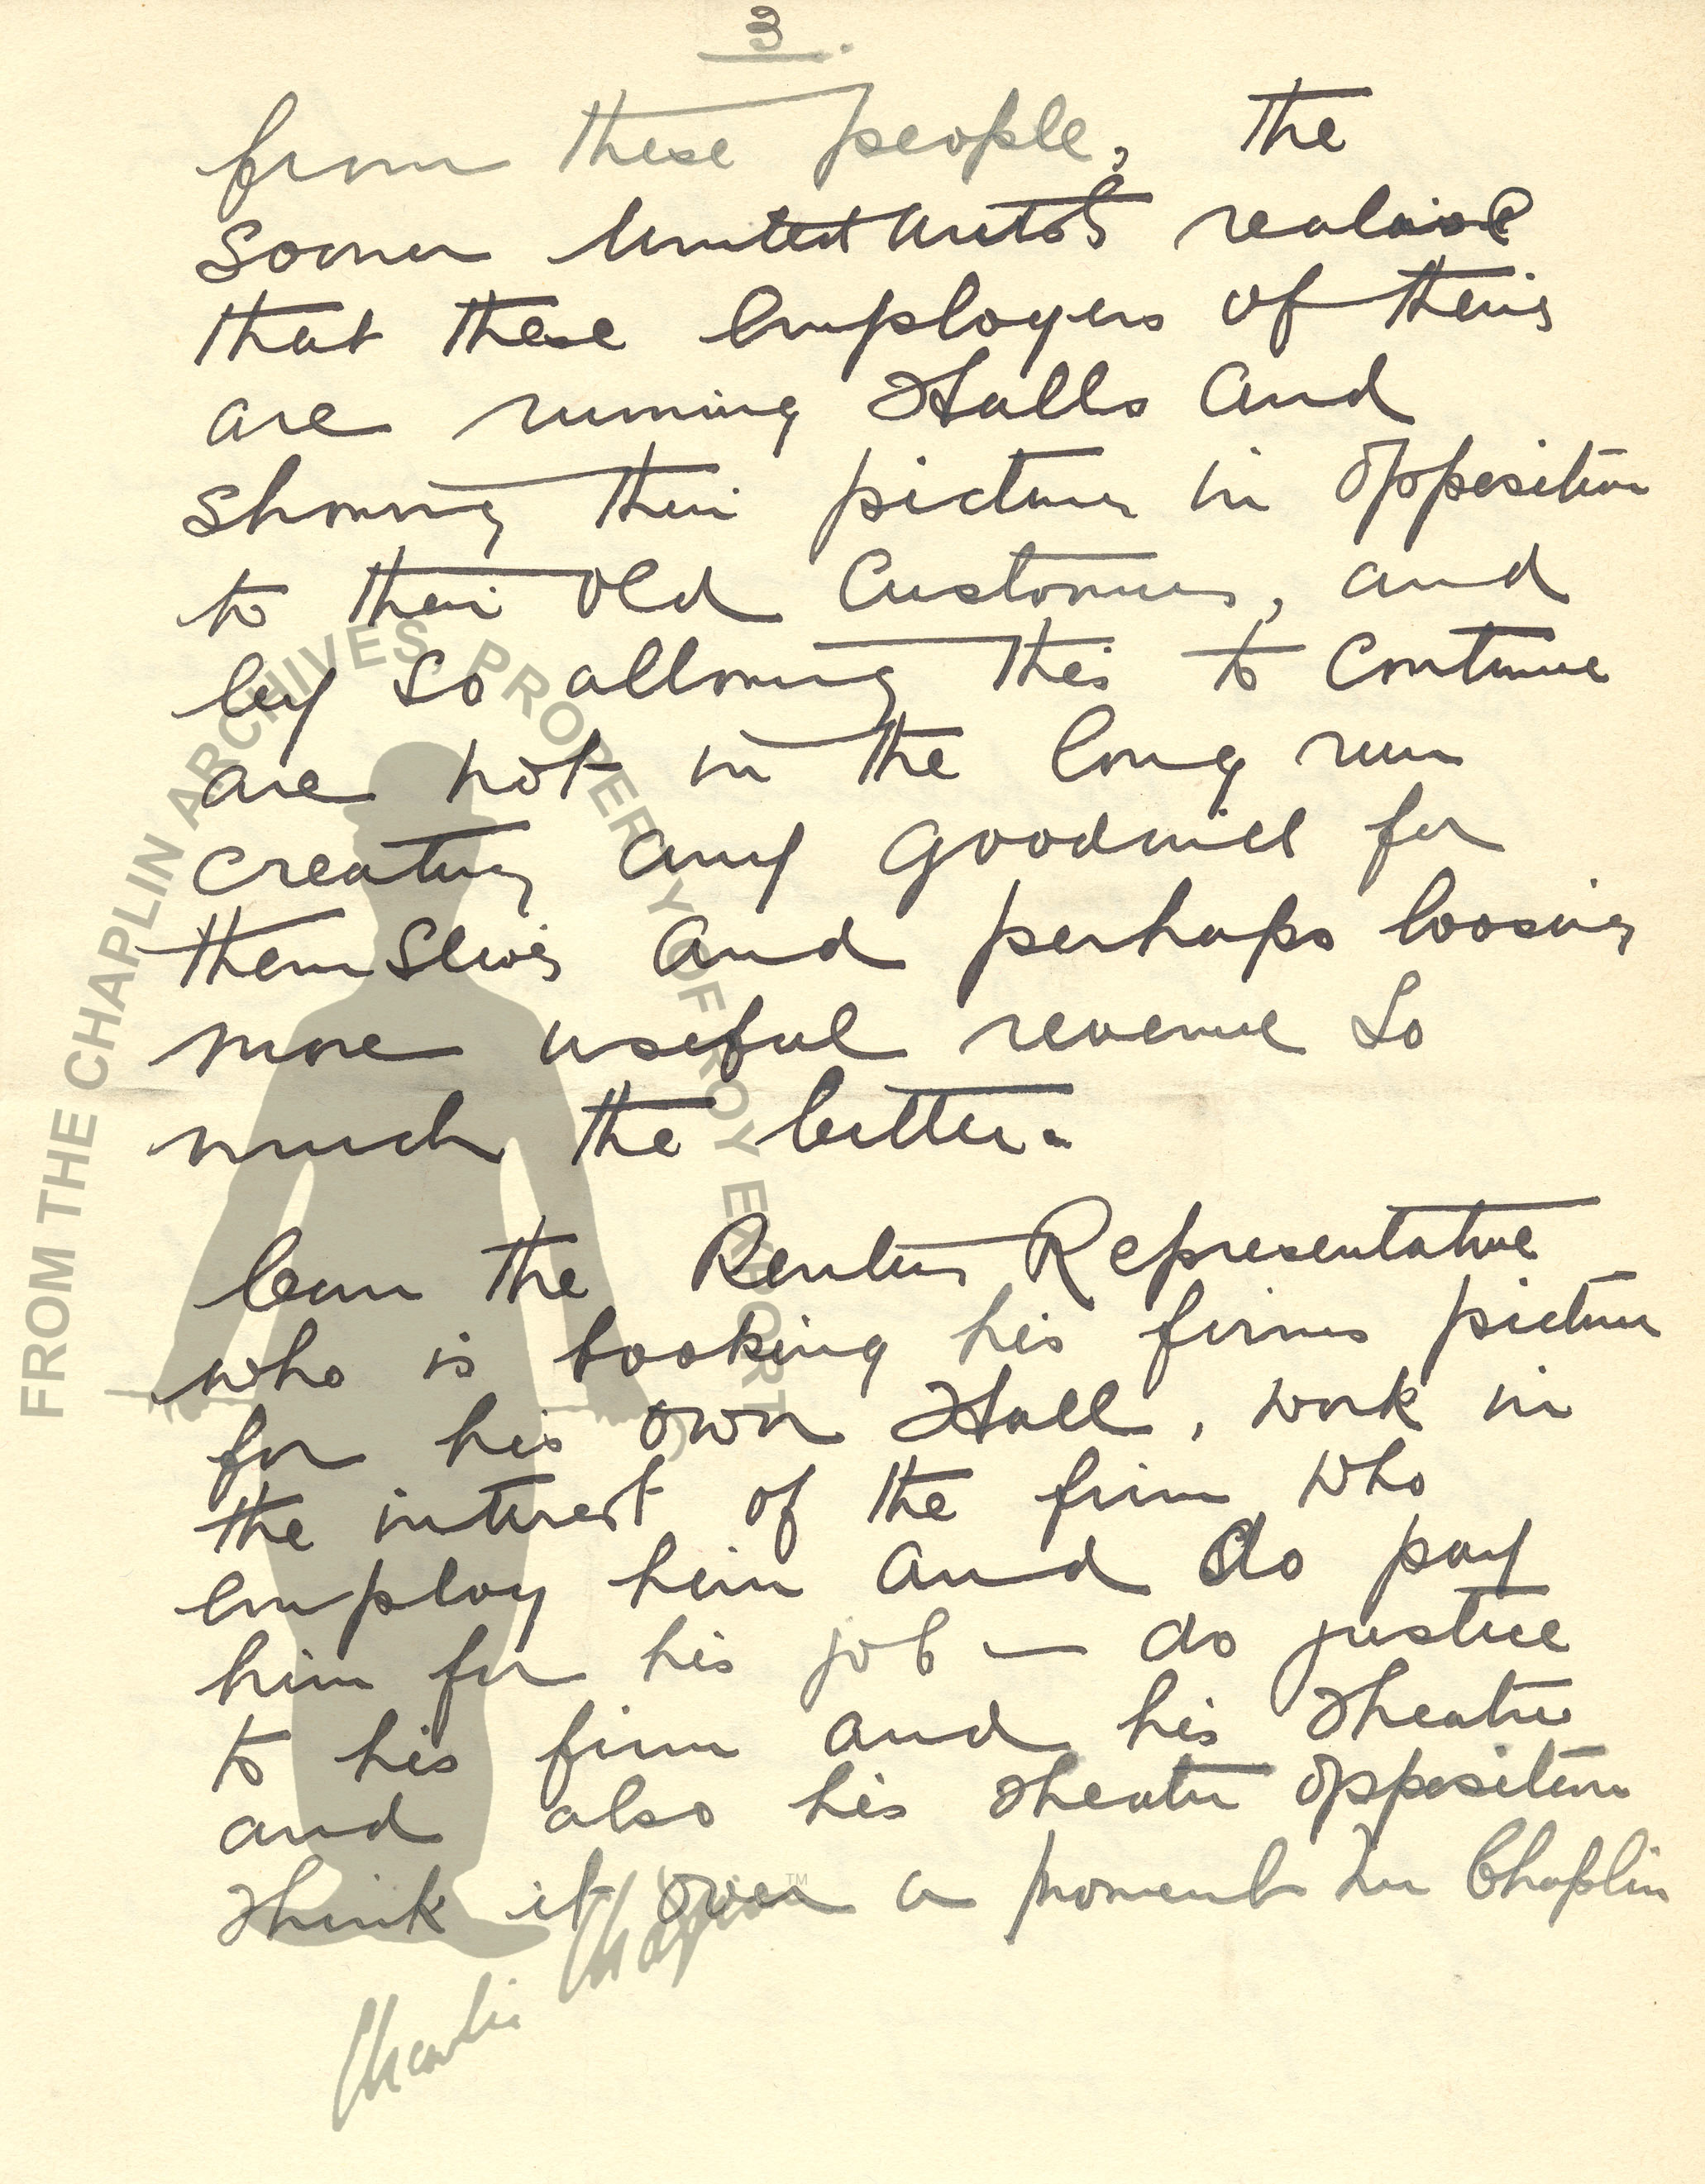 3.
from these people, the
sooner United Artists realise
that these employers of theirs
are running Halls and
showing their pictures in opposition
to their old Customers, and
by so allowing this to continue
are not in the long run
creating any goodwill for
themslves and perhaps loosing
more useful revenue so
much the better.
Can the Renters Representative
who is booking his firms pictures
for his own Hall, work in
the interest of the firm who
employ him and do pay
him for his job — do justice
to his firm and his Theatre
and also his Theatre opposition
Think it over a moment Mr Chaplin
FROM THE CHAPLIN ARCHIVES, PROPERTY OF ROY EXPORT S
Charlie Chaplin™